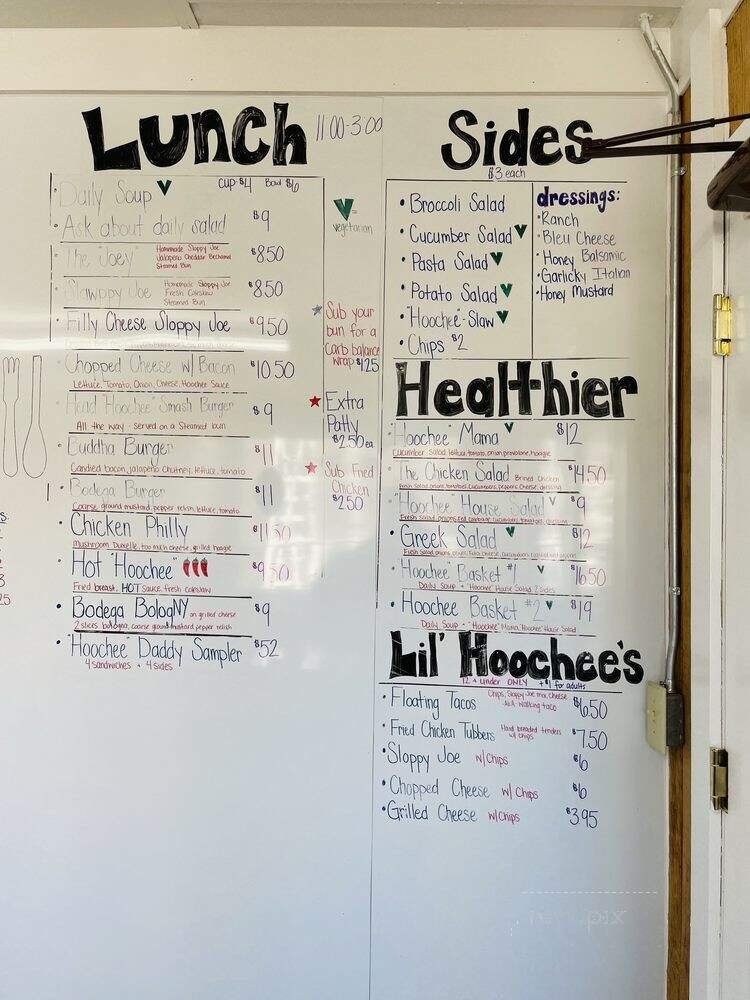 Lunch 11:00-3:00
Daily Soup V cup $4 Bowl $6
Ask about daily salad $9
The "Joey" Homemade Sloppy Joe $8.50
Jalapeno Cheddar Bechamel
Steamed Bun
Slawppy Joe Homemade Sloppy Joe $8.50
Fresh Coleslaw
Steamed Bun
Filly Cheese Sloppy Joe $9.50
Chopped Cheese w/ Bacon $10.50
Lettuce, Tomato, Onion, Cheese, Hoochee Sauce
Head "Hoochee" Smash Burger $9
All the way - served on a Steamed bun
Buddha Burger $11
Candied bacon, jalapeño chutney, lettuce, tomato
Bodega Burger $11
Coarse ground mustard, pepper relish, lettuce, tomato
Chicken Philly $11.50
Mushroom Duxelle, too much cheese, grilled hoagie
Hot "Hoochee" $9.50
Fried breast, HOT sauce, fresh coleslaw
Bodega BologNY on grilled cheese $9
2 slices bologna, coarse ground mustard pepper relish
"Hoochee" Daddy Sampler $52
4 sandwiches + 4 sides
V =
vegetarian
Sub your
bun for a
Carb balance
wrap $1.25
Extra
Patty
$2.50 ea
Sub Fried
Chicken
$2.50
Sides
$3 each
Broccoli Salad
Cucumber Salad V
Pasta Salad V
Potato Salad V
"Hoochee"-Slaw V
Chips $2
dressings:
Ranch
Bleu Cheese
Honey Balsamic
Garlicky Italian
Honey Mustard
Healthier
"Hoochee" Mama V $12
Cucumber Salad, lettuce, tomato, onion, provolone, hoagie
The Chicken Salad Brined Chicken $14.50
Fresh Salad greens, tomatoes, cucumbers, peppers, cheese, dressing
"Hoochee" House Salad V $9
Fresh Salad greens, cabbage, cucumbers, tomatoes, dressing
Greek Salad V $12
Fresh Salad greens, olives, feta cheese, cucumbers,
"Hoochee" Basket #1 V $16.50
Daily Soup + "Hoochee" House Salad, 2 sides
Hoochee Basket #2 V $19
Daily Soup + "Hoochee" Mama, "Hoochee" House Salad
Lil' Hoochee's
12 + under ONLY +$1 for adults
Floating Tacos Chips, Sloppy Joe mix, Cheese $6.50
A.K.A. Walking taco
Fried Chicken Tubbers Hand breaded tenders $7.50
w/ chips
Sloppy Joe w/Chips $6
Chopped Cheese w/Chips $6
Grilled Cheese w/Chips $3.95